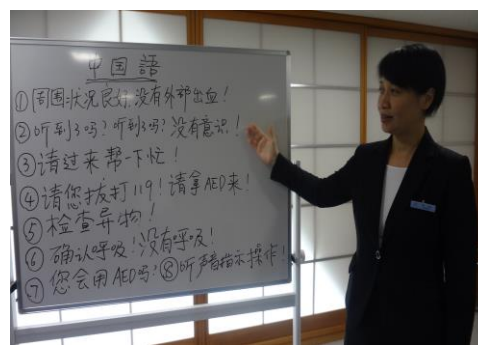 中国語
①周围状况良好,没有外部出血!
②听到了吗?听到了吗?没有意识!
③请过来帮一下忙!
④请您拨打119!请拿AED来!
⑤检查异物!
⑥确认呼吸!没有呼吸!
⑦您会用AED吗?⑧听声音指示操作!